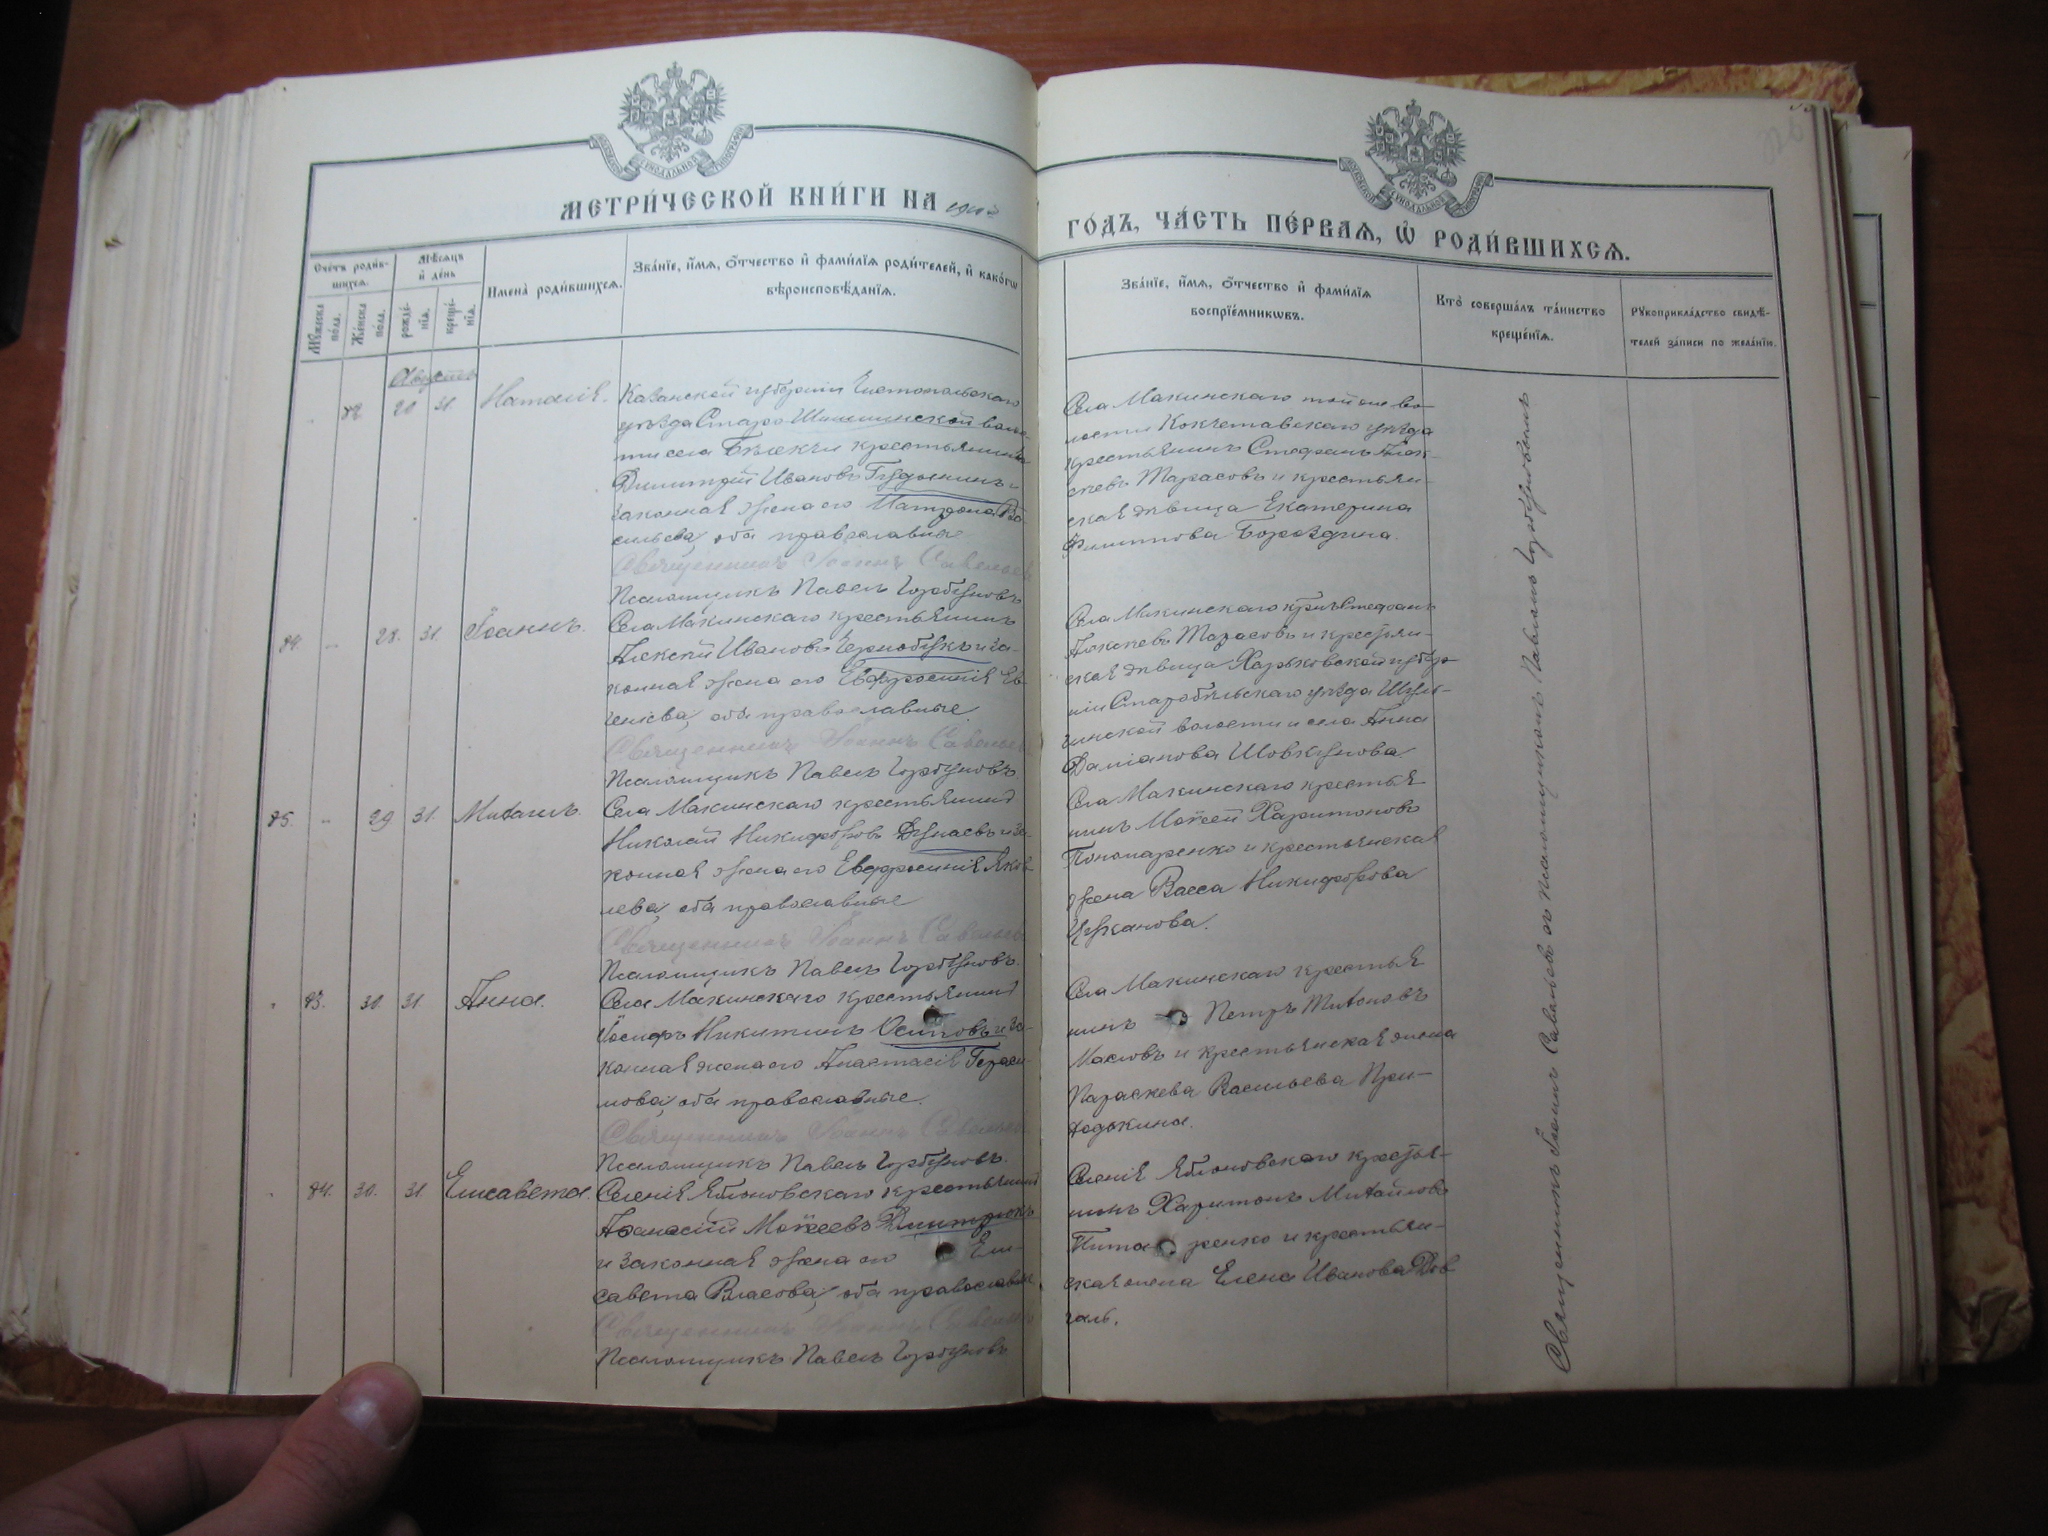 МЕТРИ́ЧЕСКОЙ КНИ́ГИ НА
ГО́ДЪ, ЧА́СТЬ ПЕ́РВАѦ, Ѡ҆ РОДИ́ВШИХСѦ.
Сче́тъ роди́в-
шихсѧ.
Мꙋ́жеска
по́ла.
Же́нска
по́ла.
Мѣ́сѧцъ
и҆ де́нь
рожде́-
нїѧ.
креще́-
нїѧ.
И҆мена̀ роди́вшихсѧ.
Зва́нїе, и҆́мѧ, ѻ҆́тчество и҆ фами́лїѧ роди́телей, и҆ како́гѡ
вѣроисповѣ́данїѧ.
Зва́нїе, и҆́мѧ, ѻ҆́тчество и҆ фами́лїѧ
воспрїе́мникѡвъ.
Кто̀ соверша́лъ та́инство
креще́нїѧ.
Рꙋкоприкла́дство свидѣ́-
телей за́писи по жела́нїю.
Августъ
82 20 31. Наталія.
Казанской губерніи Чистопольскаго
уѣзда Старо- волос-
ти села крестьянинъ
Димитрій Ивановъ и
законная жена его Матрона Ва-
сильева, оба православные
Священникъ Іоаннъ Савельевъ
Псаломщикъ Павелъ Горбуновъ
Села Макинскаго той же во-
лости Кокчетавскаго уѣзда
крестьянинъ Стефанъ Алек-
сѣевъ Тарасовъ и крестьян-
ская дѣвица Екатерина
Филиппова Бороздина.
84. 28. 31. Іоаннъ.
Села Макинскаго крестьянинъ
Алексѣй Ивановъ Чернобукъ и за-
конная жена его Евфросинія Ев-
геніева, оба православные.
Священникъ Іоаннъ Савельевъ
Псаломщикъ Павелъ Горбуновъ
Села Макинскаго кр-нъ Стефанъ
Алексѣевъ Тарасовъ и крестьян-
ская дѣвица Харьковской губер-
ніи Старобѣльскаго уѣзда Шуль-
гинской волости и села Анна
Даміанова Шовкунова.
85. 29 31. Михаилъ.
Села Макинскаго крестьянинъ
Николай Никифоровъ Дунаевъ и за-
конная жена его Евфросинія Яков-
лева, оба православные
Священникъ Іоаннъ Савельевъ
Псаломщикъ Павелъ Горбуновъ.
Села Макинскаго крестья-
нинъ Моѵсей Харитоновъ
Пономаренко и крестьянская
жена Васса Никифорова
Цуканова.
83. 30. 31. Анна.
Села Макинскаго крестьянинъ
Іосифъ Никитинъ Осиповъ и за-
конная жена его Анастасія Гераси-
мова, оба православные.
Священникъ Іоаннъ Савельевъ
Псаломщикъ Павелъ Горбуновъ.
Села Макинскаго крестья-
нинъ Петръ Тихоновъ
Масловъ и крестьянская жена
Параскева Васильева При-
ходькина.
84. 30. 31. Елисавета.
Селенія Яблоновскаго крестьянинъ
Аѳанасій Моѵсеевъ Дмитрюкъ
и законная жена его Ели-
савета Власова, оба православные.
Священникъ Іоаннъ Савельевъ
Псаломщикъ Павелъ Горбуновъ
Селенія Яблоновскаго крестья-
нинъ Харитонъ Михайловъ
и крестьян-
ская жена Елена Иванова Дов-
галь.
Священникъ Іоаннъ Савельевъ съ псаломщикомъ Павломъ Горбуновымъ